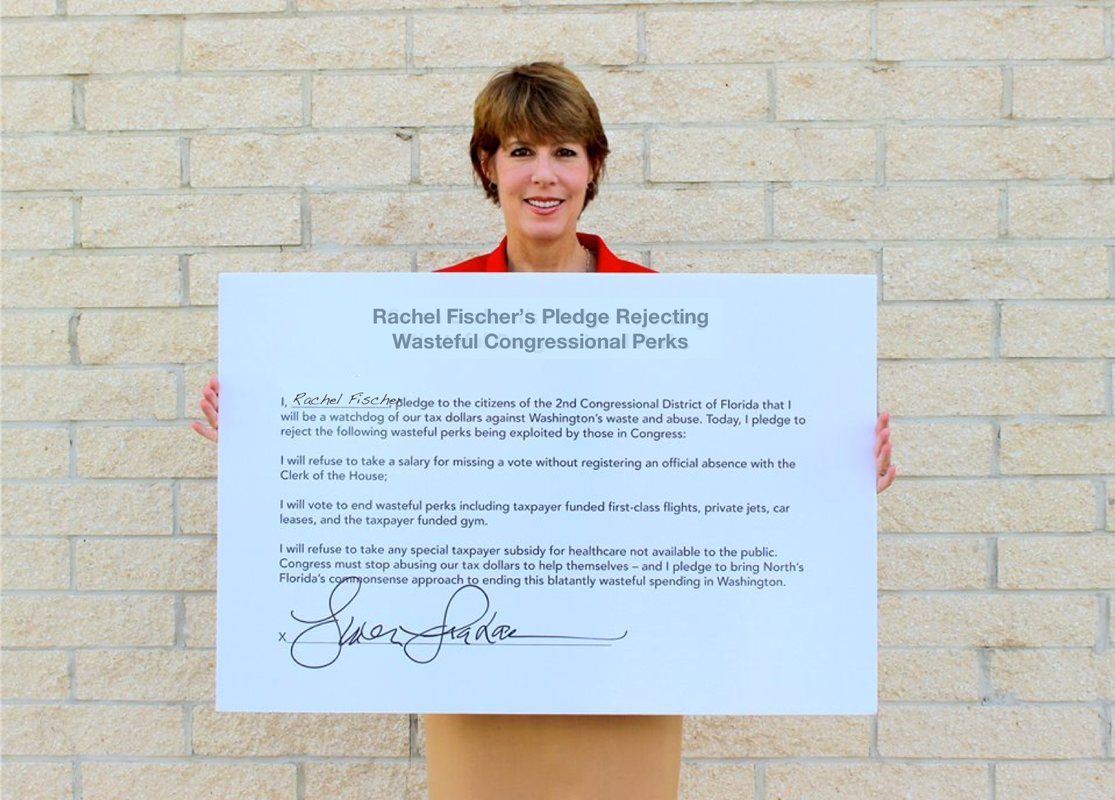 Rachel Fischer’s Pledge Rejecting
Wasteful Congressional Perks
I, Rachel Fischer pledge to the citizens of the 2nd Congressional District of Florida that I
will be a watchdog of our tax dollars against Washington’s waste and abuse. Today, I pledge to
reject the following wasteful perks being exploited by those in Congress:
I will refuse to take a salary for missing a vote without registering an official absence with the
Clerk of the House;
I will vote to end wasteful perks including taxpayer funded first-class flights, private jets, car
leases, and the taxpayer funded gym.
I will refuse to take any special taxpayer subsidy for healthcare not available to the public.
Congress must stop abusing our tax dollars to help themselves – and I pledge to bring North’s
Florida’s commonsense approach to ending this blatantly wasteful spending in Washington.
x